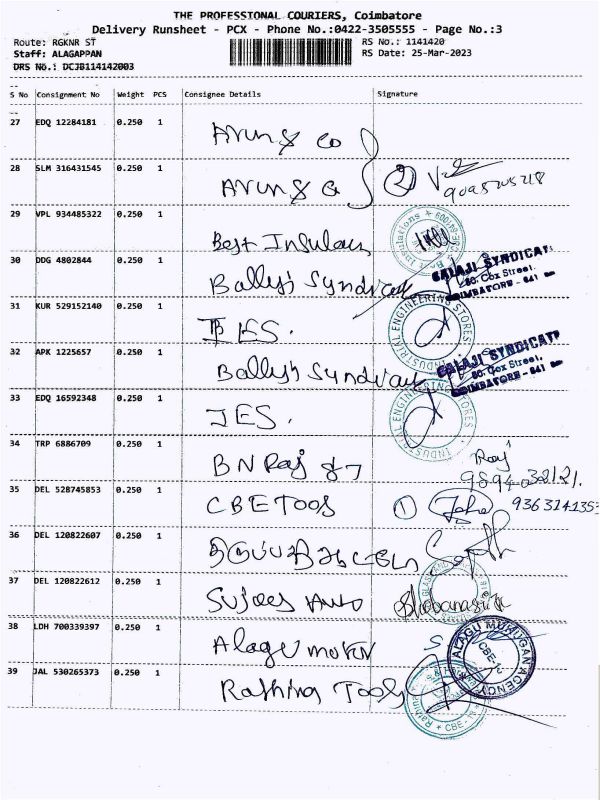 THE PROFESSIONAL COURIERS, Coimbatore
Delivery Runsheet - PCX - Phone No.:0422-3505555 - Page No.:3
Route: RGKNR ST
RS No.: 1141420
Staff: ALAGAPPAN
RS Date: 25-Mar-2023
DRS No.: DCJB114142003
S No Consignment No Weight PCS Consignee Details Signature
27 EDQ 12284181 0.250 1 Arun & co
28 SLM 316431545 0.250 1 Arun & Co 2
29 VPL 934485322 0.250 1 Best Insulans
30 DDG 4802844 0.250 1 Ballyi Syndicate
BALAJI SYNDICATE
80. Cox Street,
COIMBATORE - 641
31 KUR 529152140 0.250 1 IES.
INDUSTRIAL ENGINEERING STORES
32 APK 1225657 0.250 1 Ballyi Syndicate
BALAJI SYNDICATE
80. Cox Street,
COIMBATORE - 641
33 EDQ 16592348 0.250 1 IES.
INDUSTRIAL ENGINEERING STORES
34 TRP 6886709 0.250 1 BN Raj & Raj
9894032121.
35 DEL 528745853 0.250 1 CBE Tools 1 9363141353
36 DEL 120822607 0.250 1
37 DEL 120822612 0.250 1 Auto
38 LDH 700339397 0.250 1 Alagu
ALAGU MURUGAN AGENCY
CBE-12
39 JAL 530265373 0.250 1 Rathina Tools